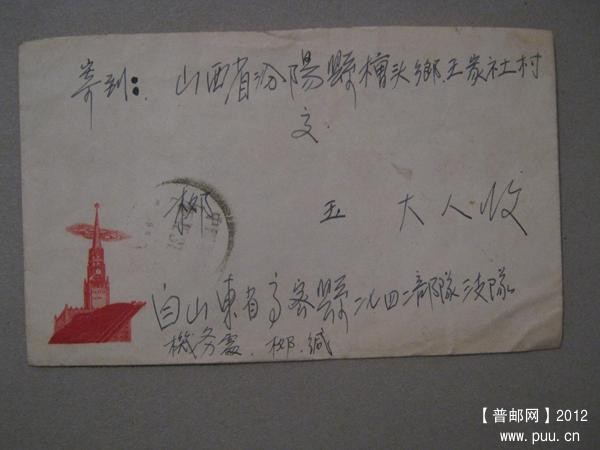 寄到: 山西省汾陽縣檀头鄉王家社村
交
柳 玉 大人收
自山東省高密縣二九四二部隊三支隊
機务處. 柳. 缄
【普邮网】2012
www.puu.cn